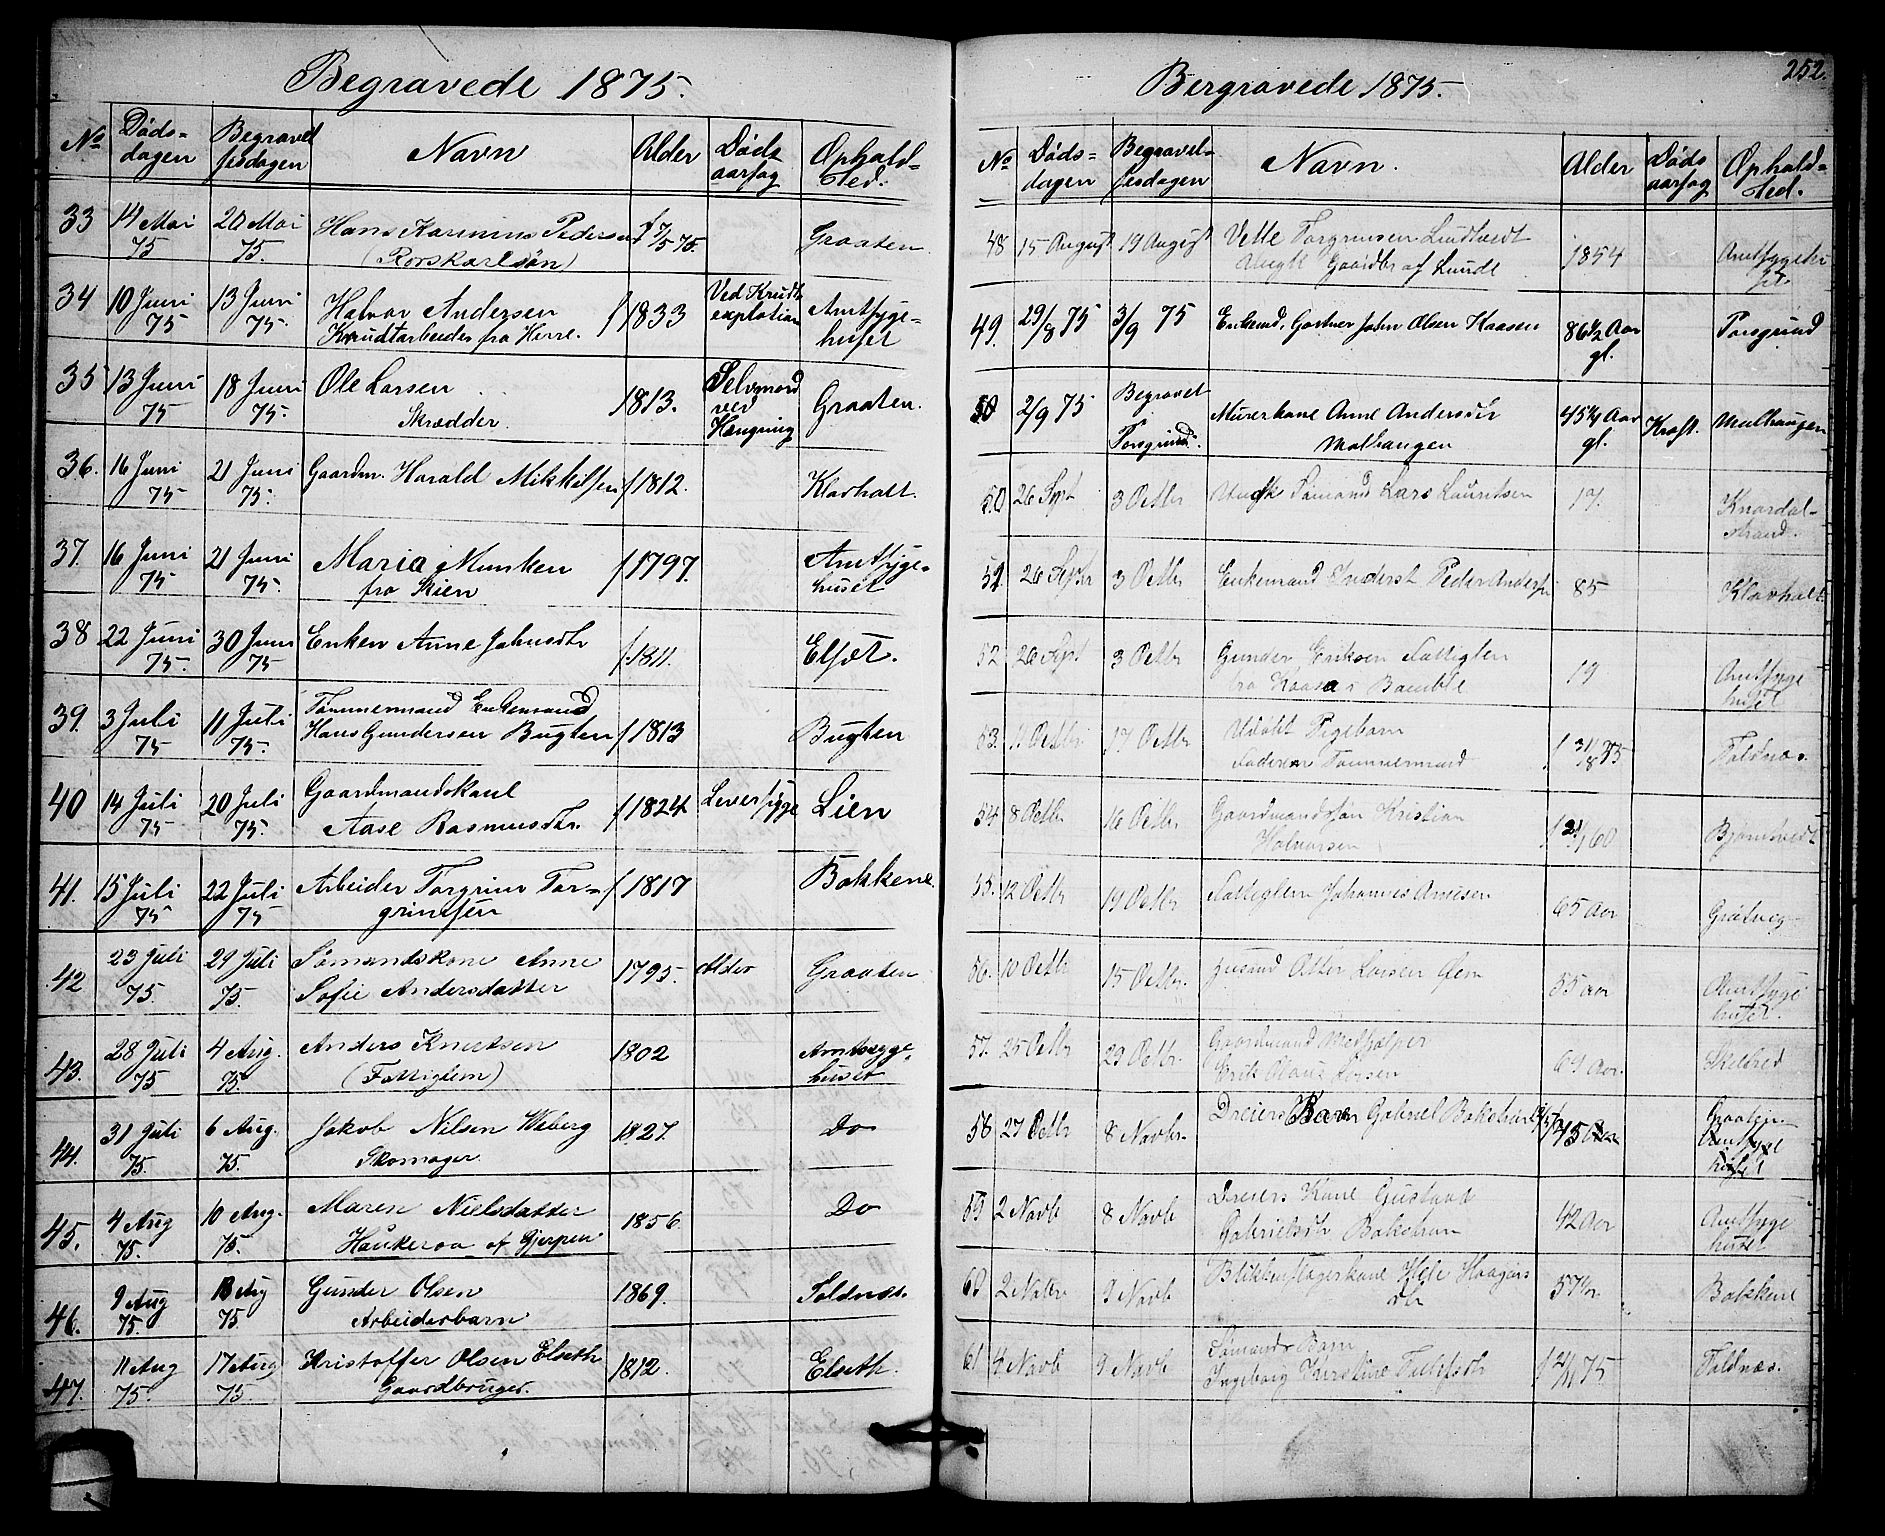 Begravede 1875.
No Døds- dagen Begravel sesdagen Navn Alder Døds aarsag Ophold- sted.
33 14 Mai 75 20 Mai 75. Hans Karinius Pedersen f 7/5 75. Graaten
(Rorskarlsøn)
34 10 Juni 75 13 Juni 75. Halvor Andersen f 1833 Ved Krudt explotion Amtsyge- huset
Krudtarbeider fra Herre.
35 13 Juni 75 18 Juni 75. Ole Larsen 1813. Selvmord ved Hængning Graaten.
Skrædder.
36. 16 Juni 75 21 Juni 75. Gaardm. Harald Mikkelsen f 1812. Klovholt.
37. 16 Juni 75 21 Juni 75. Maria Munken f 1797. Amtsyge- huset
fra Skien
38 22 Juni 75. 30 Juni 75 Enken Anne Johnsdtr f. 1811. Elset.
39. 3 Juli 75 11 Juli 75. Tømmermand Enkemand
Hans Gundersen Bugten f 1813 Bugten
40 14 Juli 75 20 Juli 75. Gaardmandskone
Aase Rasmusdtr. f 1824 Leversyge Lien
41. 15 Juli 75 22 Juli 75 Arbeider Torgrim Tor- f 1817 Bakkene
grimsen
42 23 Juli 75. 29 Juli 75. Sømandskone Anne 1795. Alder Graaten
Sofie Andersdatter
43. 28 Juli 75 4 Aug. 75. Anders Knutsen 1802 Amtssyge- huset
(Fattiglem)
44. 31 Juli 75. 6 Aug. 75. Jakob Nilsen Weberg 1827. Do
Skomager.
45. 4 Aug 75. 10 Aug. 75. Maren Nielsdatter 1856. Do
Haukeraa af Gjerpen
46. 9 Aug 75. 13 Aug 75. Gunder Olsen 1869. Foldnæs.
Arbeiderbarn
47. 11 Aug 75. 17 Aug 75 Kristoffer Olsen Elseth 1812. Elseth.
Gaardbruger.
252.
Bergravede 1875.
No Døds- dagen Begravel- sesdagen Navn. Alder Døds aarsag Ophold- sted.
48 15 August 19 August Vetle Torgrimsen f 1854
af Lunde
49. 29/8 75 3/9 75 Enkemd. Gartner John Olsen Kaasen 86 1/2 Aar gl. Porsgrund
50 2/9 75 Begravet Porsgrund. Murerkone Anne Andersdtr 45 3/4 Aar gl. Kræft. Mulhaugen
Molhaugen
50 26 Sept 3 Octbr Sømand Lars Lauritsen 17. Knardal- strand.
51 26 Septr 3 Octbr Enkemand Inderst Peder Anders 85 Klovholt
52 26 Sept 3 Octbr Gunder Eriksen Fattiglem 19 Amtsyge huset
fra Kaasa i Bamble
53. 11 Octbr 17 Octbr Udøbt Pigebarn f 31/8 75 Foldnæs.
Faderen Tømmermand
54 8 Octbr 16 Octbr Gaardmandssøn Kristian Bjørntvedt
Halvorsen
55. 12 Octbr 19 Octbr Fattiglem Johannes 65 Aar
56. 10 Octbr 15 Octbr. Husmd Otter Larsen 55 Aar Amtsyge huset.
57. 25 Octbr 29 Octbr. Gaardmand Medhjælper 69 Aar.
Erik Olaus
58 27 Octbr 8 Novbr. Dreiers Barn Gabriel Graaten. Amtsyge huset
59 2 Novb 8 Novb Dreiers Kone Gustava 42 Aar Amtsyge huset
Gabrielsdtr
60 2 Novbr 9 Novb Blikkenslagerkone Bakkene
61 4 Novb 9 Novb Sømands Barn Foldnæs.
Ingeborg Kirstine